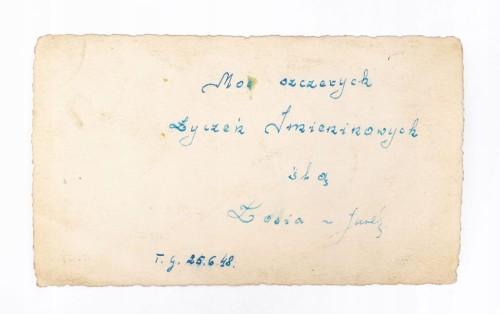 Moc szczerych
Życzeń Imieninowych
ślą
Zosia ~ Jurek
T. G. 25.6.48.